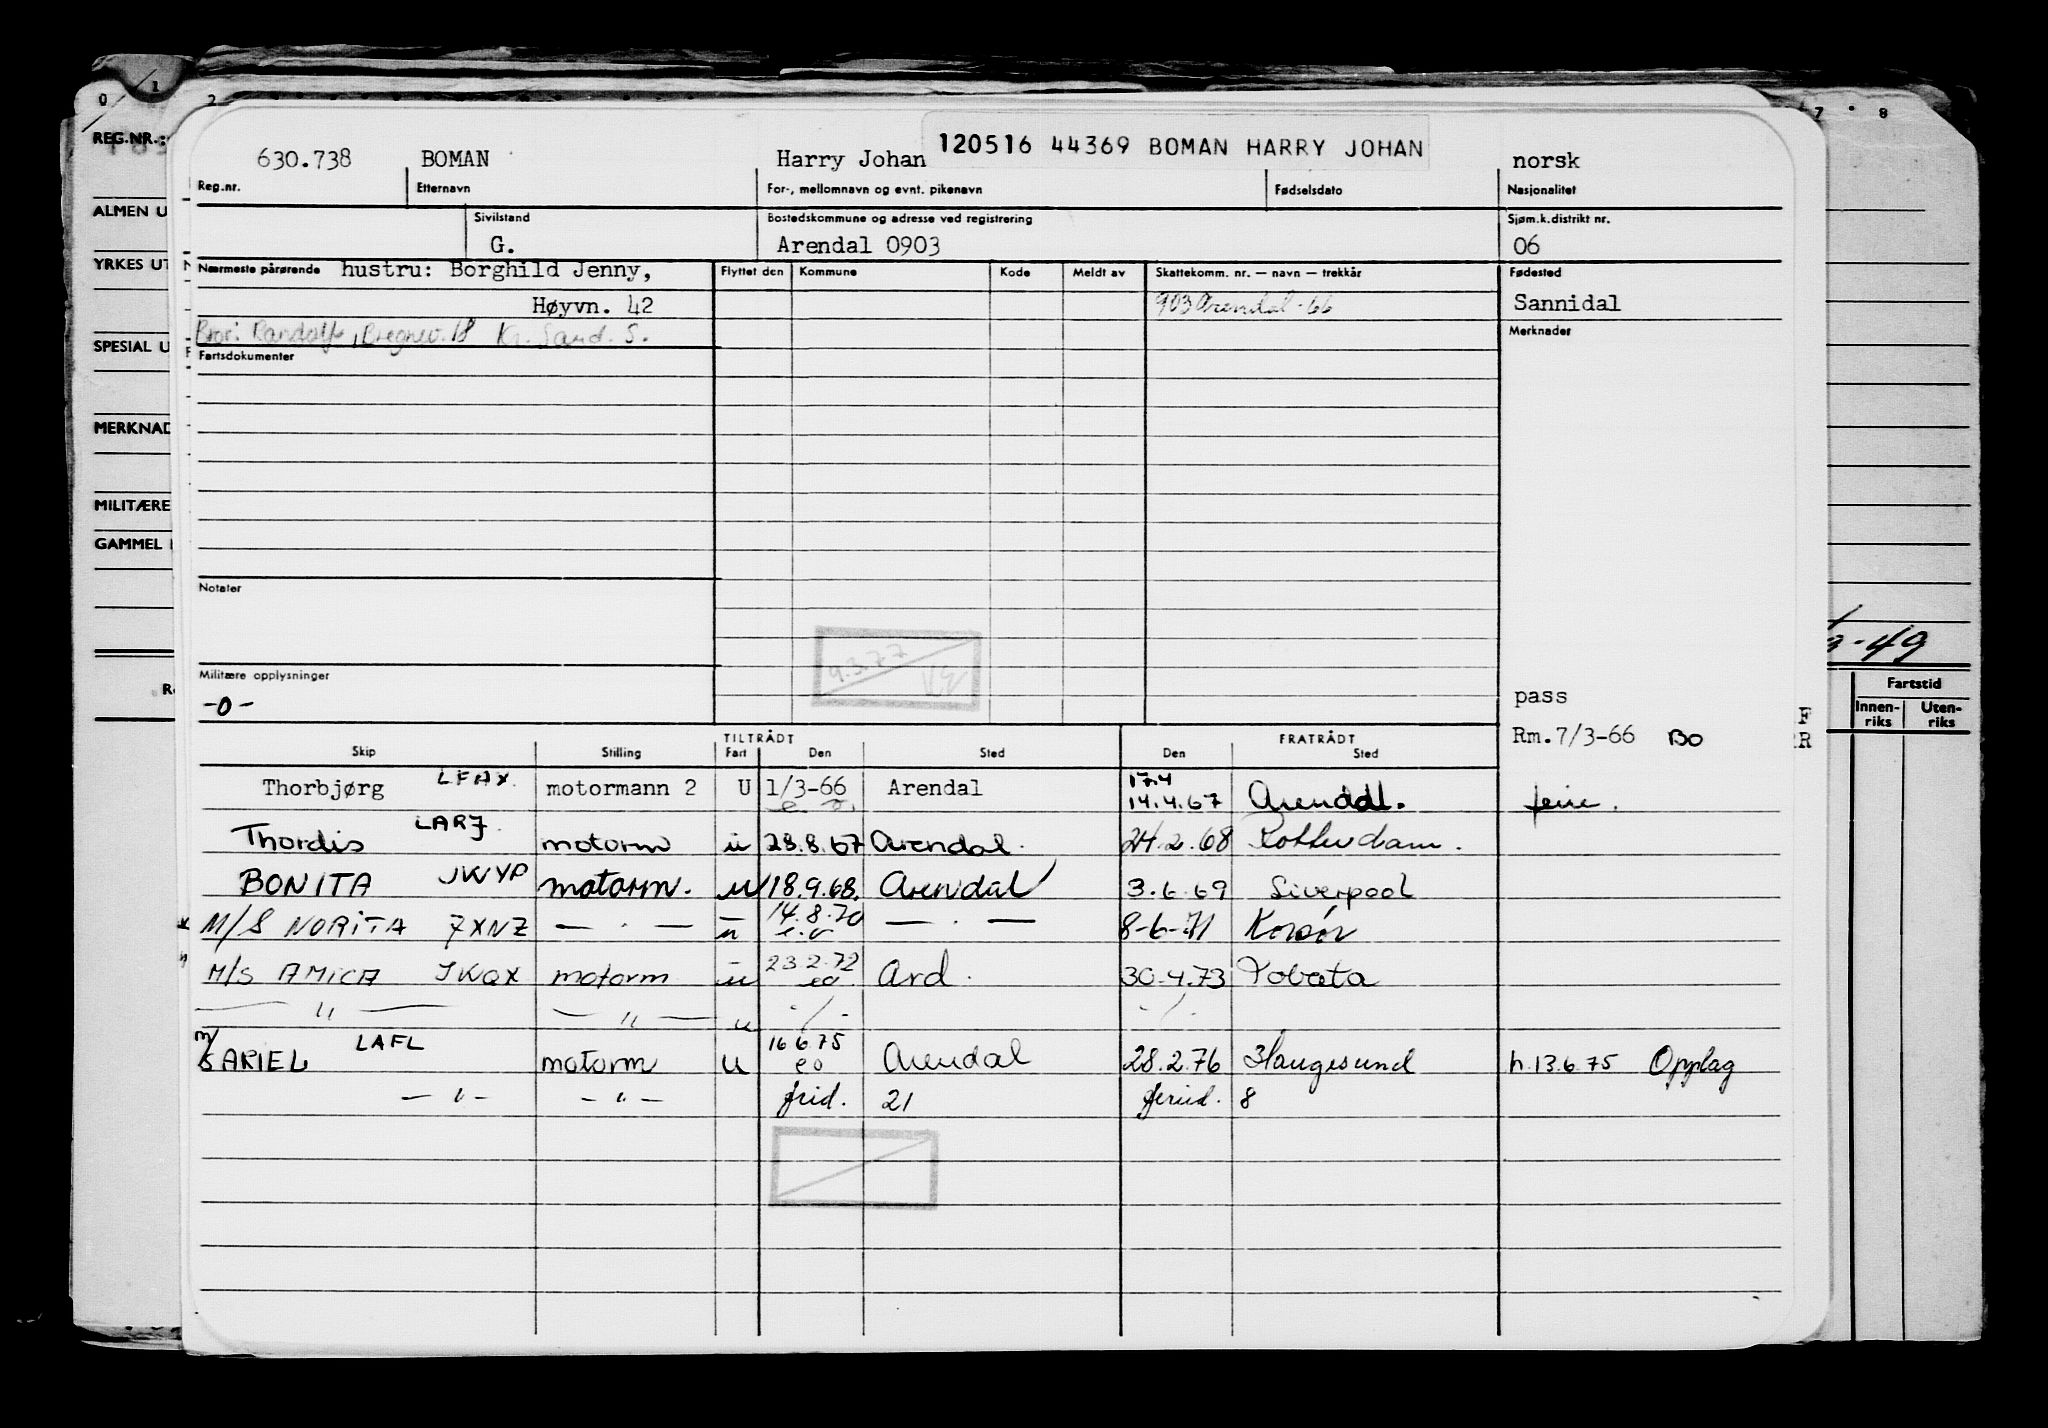 0 1 2 7 8
REG.NR.:
120516 44369 BOMAN HARRY JOHAN
630.738 BOMAN Harry Johan norsk
Reg.nr. Etternavn For-, mellomnavn og evnt. pikenavn Fødselsdato Nasjonalitet
ALMEN U
Sivilstand Bostedskommune og adresse ved registrering Sjøm.k.distrikt nr.
G. Arendal 0903 06
YRKES UT
Nærmeste pårørende hustru: Borghild Jenny, Flyttet den Kommune Kode Meldt av Skattekomm. nr. — navn — trekkår Fødested
Høyvn. 42 903 Arendal-66 Sannidal
Bror: Randolf, Bregnev. 18 Kr. Sand. S. Merknader
SPESIAL U
Fartsdokumenter
MERKNAD
MILITÆRE
GAMMEL
Notater
9.3.77
-49
Militære opplysninger
-0-
pass
Fartstid
Innen-riks Uten-riks
Rm.7/3-66 BO
TILTRÅDT FRATRÅDT
Skip Stilling Fart Den Sted Den Sted
Thorbjørg LFAX motormann 2 U 1/3-66 Arendal 17.4 14.4.67 Arendal. ferie.
Thordis LARJ motorm u 28.8.67 Arendal. 24.2.68 Rotterdam.
BONITA JWYP motorm. u 18.9.68. Arendal 3.6.69 Liverpool
M/S NORITA 7XNZ — " — u 14.8.70 e.o — . — 8-6-71 Korsör
M/S AMICA JWQX motorm u 23.2.72 eo Ard. 30.4.73 Tobata
— " — — " — u -/- -/-
m/s ARIEL LAFL motorm U 16.6.75 eo Arendal 28.2.76 Haugesund h.13.6.75 Opplag
— " — — " — frid. 21 feried. 8